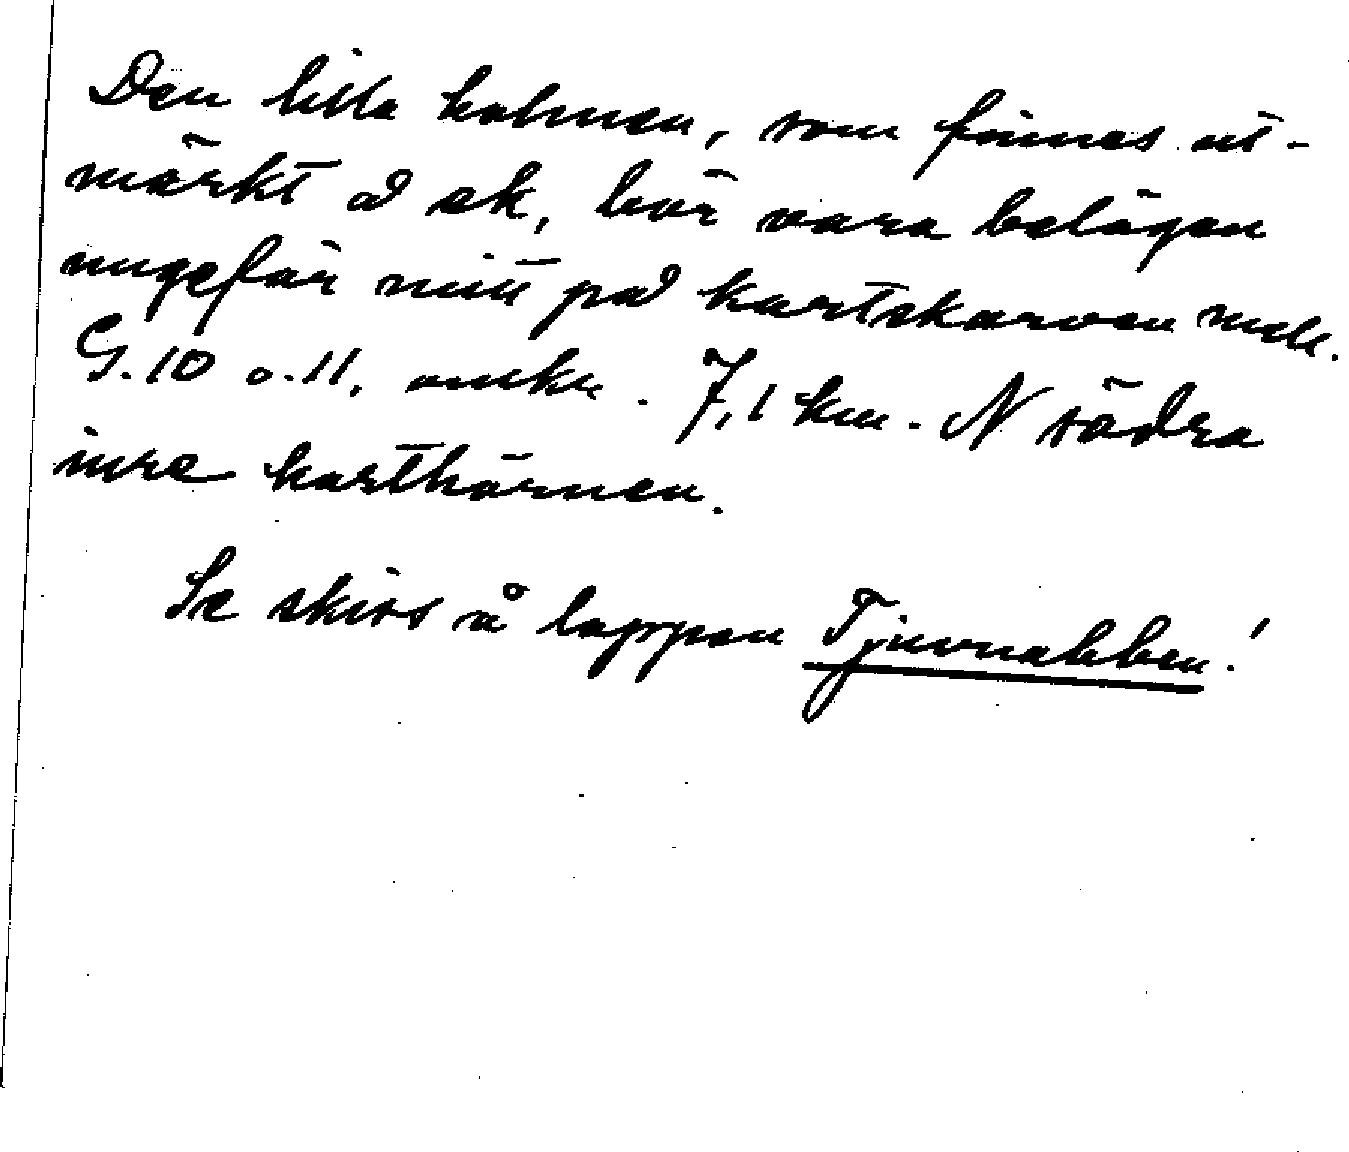 Den lilla holmen, som finnes ut-
märkt å ek, bör vara belägen
ungefär mitt på kartskarven mell.
G. 10 o. 11. omkr. 7,1 km. N södra
inre karthörnen.
Se skiss å lappen Tjuvnabben!